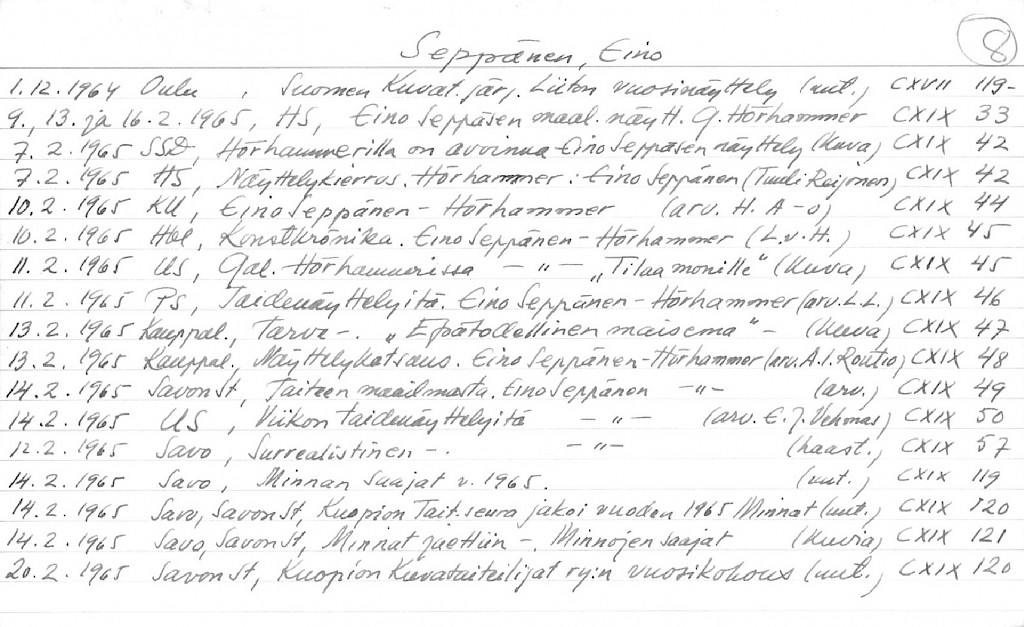 8
Seppänen, Eino
1.12.1964 Oulu, Suomen Kuvat.järj. Liiton vuosinäyttely (uut.) CXVII 119-
9., 13. ja 16.2.1965, HS, Eino Seppäsen maal. näytt. G. Hörhammer CXIX 33
7.2.1965 SSD, Hörhammerilla on avoinna Eino Seppäsen näyttely (kuva) CXIX 42
7.2.1965 HS, Näyttelykierros. Hörhammer: Eino Seppänen (Tuuli Reijonen) CXIX 42
10.2.1965 KU, Eino Seppänen - Hörhammer (arv. H. A-o) CXIX 44
10.2.1965 Hbl, Konstkrönika. Eino Seppänen - Hörhammer (L.v.H.) CXIX 45
11.2.1965 US, Gal. Hörhammerissa - " - „Tilaa monille" (kuva) CXIX 45
11.2.1965 PS, Taidenäyttelyitä. Eino Seppänen - Hörhammer (arv. L.L.) CXIX 46
13.2.1965 Kauppal., Tarve -. „Epätodellinen maisema" - (kuva) CXIX 47
13.2.1965 Kauppal., Näyttelykatsaus. Eino Seppänen - Hörhammer (arv. A.I. Routio) CXIX 48
14.2.1965 Savon St, Taiteen maailmasta. Eino Seppänen - " - (arv.) CXIX 49
14.2.1965 US, Viikon taidenäyttelyitä - " - (arv. E.J. Vehmas) CXIX 50
12.2.1965 Savo, Surrealistinen -. - " - (haast.) CXIX 57
14.2.1965 Savo, Minnan saajat v. 1965. (uut.) CXIX 119
14.2.1965 Savo, Savon St, Kuopion Tait.seura jakoi vuoden 1965 Minnat (uut.) CXIX 120
14.2.1965 Savo, Savon St, Minnat jaettiin -. Minnojen saajat (kuvia) CXIX 121
20.2.1965 Savon St, Kuopion Kuvataiteilijat ry:n vuosikokous (uut.) CXIX 120